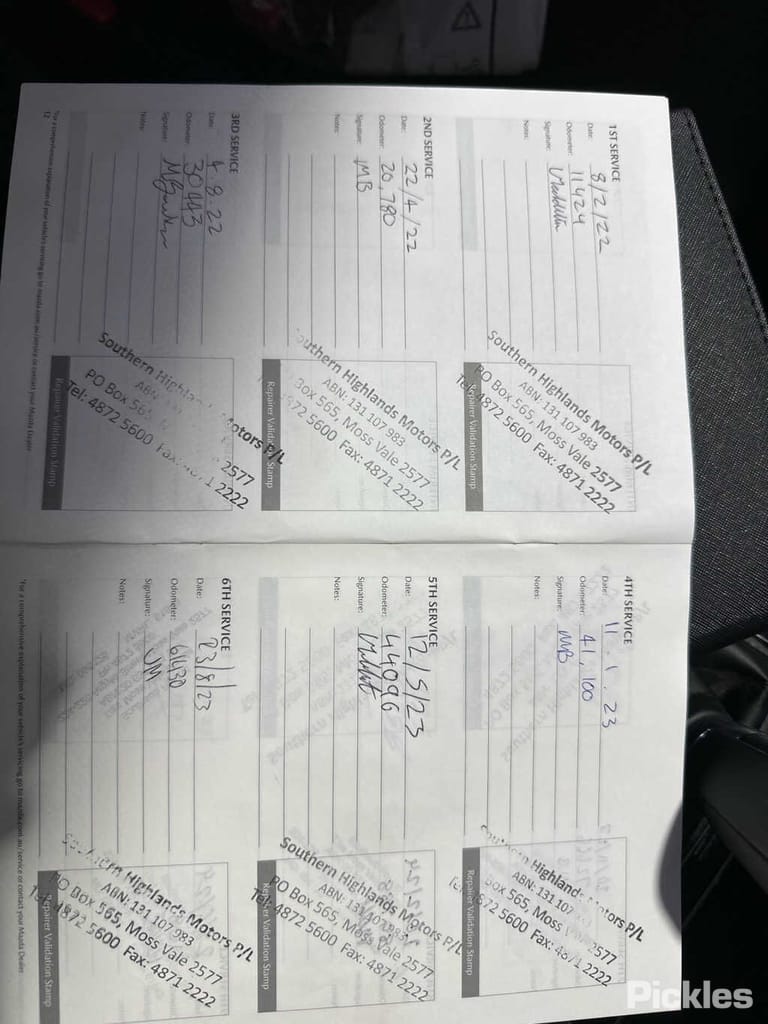 1ST SERVICE
Date: 8/2/22
Odometer: 11424
Signature:
Notes:
Southern Highlands Motors P/L
ABN: 131 107 983
PO Box 565, Moss Vale 2577
Tel: 4872 5600 Fax: 4871 2222
Repairer Validation Stamp
2ND SERVICE
Date: 22/4/22
Odometer: 20,780
Signature: MB
Notes:
Southern Highlands Motors P/L
ABN: 131 107 983
Box 565, Moss Vale 2577
4872 5600 Fax: 4871 2222
Repairer Validation Stamp
3RD SERVICE
Date: 4.8.22
Odometer: 30443
Signature:
Notes:
Southern Highlands Motors P/L
ABN: 131
PO Box 565, 2577
Tel: 4872 5600 Fax: 4871 2222
Repairer Validation Stamp
12 *For a comprehensive explanation of your vehicle's servicing go to mazda.com.au/service or contact your Mazda Dealer.
4TH SERVICE
Date: 11.1.23
Odometer: 41,100
Signature: MB
Notes:
Southern Highlands Motors P/L
ABN: 131 107
Box 565, Moss 2577
4872 5600 Fax: 4871 2222
Repairer Validation Stamp
5TH SERVICE
Date: 12/5/23
Odometer: 44096
Signature:
Notes:
Southern Highlands Motors P/L
ABN: 131 107 983
PO Box 565, Moss Vale 2577
Tel: 4872 5600 Fax: 4871 2222
Repairer Validation Stamp
6TH SERVICE
Date: 23/8/23
Odometer: 61430
Signature: JM
Notes:
Southern Highlands Motors P/L
ABN: 131 107 983
PO Box 565, Moss Vale 2577
Tel: 4872 5600 Fax: 4871 2222
Repairer Validation Stamp
*For a comprehensive explanation of your vehicle's servicing go to mazda.com.au/service or contact your Mazda Dealer.
Pickles